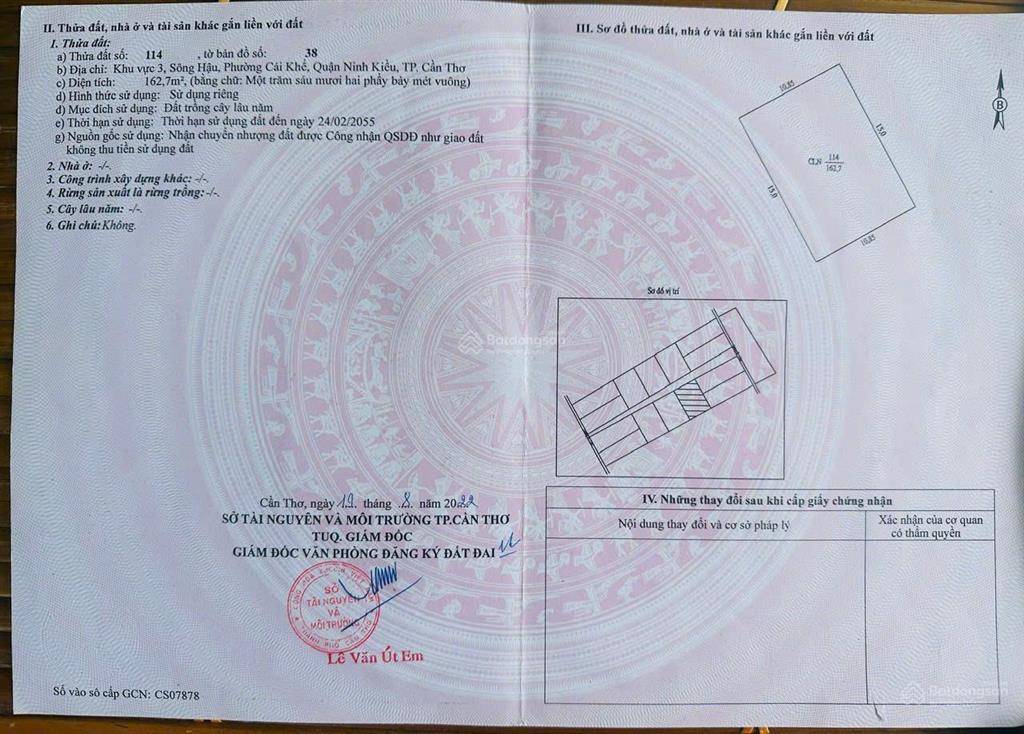 II. Thửa đất, nhà ở và tài sản khác gắn liền với đất
1. Thửa đất:
a) Thửa đất số: 114 , tờ bản đồ số: 38
b) Địa chỉ: Khu vực 3, Sông Hậu, Phường Cái Khế, Quận Ninh Kiều, TP. Cần Thơ
c) Diện tích: 162,7m², (bằng chữ: Một trăm sáu mươi hai phẩy bảy mét vuông)
d) Hình thức sử dụng: Sử dụng riêng
đ) Mục đích sử dụng: Đất trồng cây lâu năm
e) Thời hạn sử dụng: Thời hạn sử dụng đất đến ngày 24/02/2055
g) Nguồn gốc sử dụng: Nhận chuyển nhượng đất được Công nhận QSDĐ như giao đất
không thu tiền sử dụng đất
2. Nhà ở: -/-.
3. Công trình xây dựng khác: -/-.
4. Rừng sản xuất là rừng trồng: -/-.
5. Cây lâu năm: -/-.
6. Ghi chú: Không.
Cần Thơ, ngày 19 tháng 8 năm 2022
SỞ TÀI NGUYÊN VÀ MÔI TRƯỜNG TP.CẦN THƠ
TUQ. GIÁM ĐỐC
GIÁM ĐỐC VĂN PHÒNG ĐĂNG KÝ ĐẤT ĐAI
SỞ
TÀI NGUYÊN
VÀ
MÔI TRƯỜNG
THÀNH PHỐ CẦN THƠ
Lê Văn Út Em
Số vào sổ cấp GCN: CS07878
III. Sơ đồ thửa đất, nhà ở và tài sản khác gắn liền với đất
10,85
15,0
CLN 114
162,7
15,0
10,85
B
Sơ đồ vị trí
Batdongsan
IV. Những thay đổi sau khi cấp giấy chứng nhận
Nội dung thay đổi và cơ sở pháp lý
Xác nhận của cơ quan
có thẩm quyền
Batdongsan